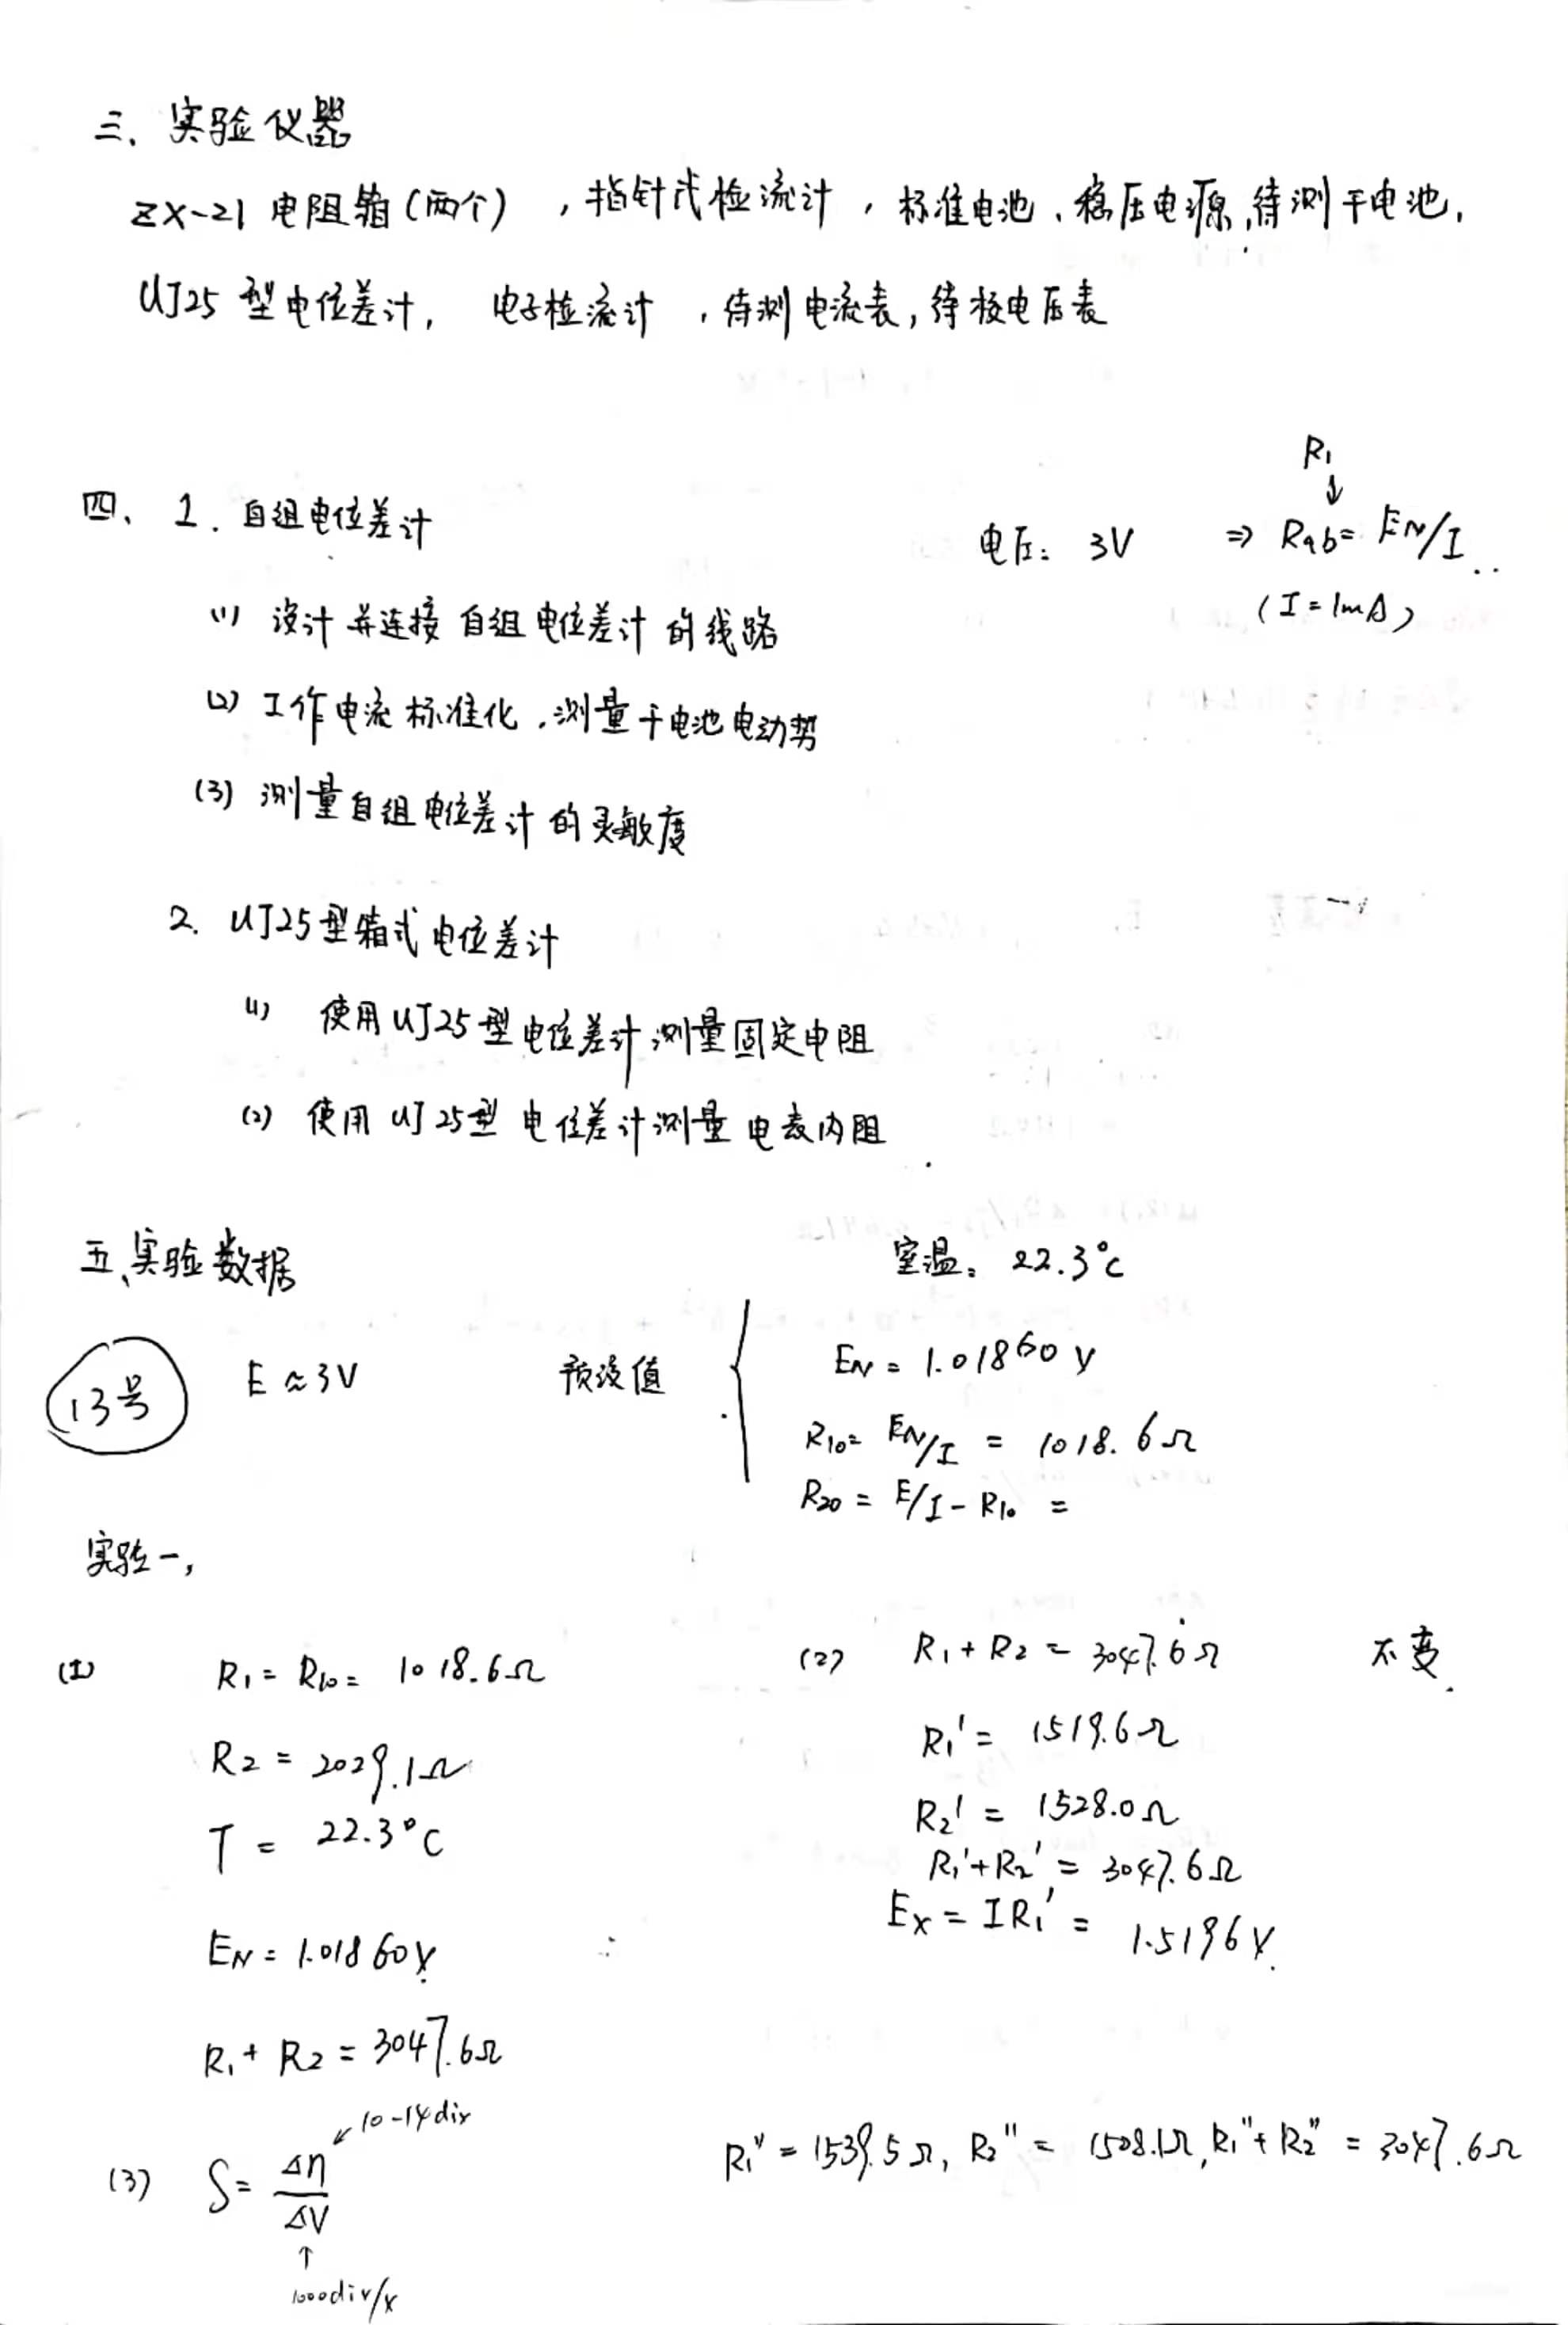 三、实验仪器
ZX-21 电阻箱(两个) ，指针式检流计，标准电池、稳压电源，待测干电池，
UJ25 型电位差计， 电子检流计 ，待测电流表，待校电压表
R₁
↓
四、 1. 自组电位差计
电压: 3V ⇒ Rab= EN/I
(I=1mA)
(1) 设计并连接自组电位差计的线路
(2) 工作电流标准化，测量干电池电动势
(3) 测量自组电位差计的灵敏度
2. UJ25型箱式电位差计
(1) 使用UJ25型电位差计测量固定电阻
(2) 使用UJ25型电位差计测量电表内阻
五、实验数据 室温: 22.3°C
13号 E≈3V 预设值
EN = 1.01860V
R₁₀= EN/I = 1018.6Ω
R₂₀ = E/I - R₁₀ =
实验一，
(1) R₁ = R₁₀ = 1018.6Ω
R₂ = 2029.1Ω
T = 22.3°C
EN = 1.01860V
R₁ + R₂ = 3047.6Ω
(2) R₁ + R₂ = 3047.6Ω 不变
R₁' = 1519.6Ω
R₂' = 1528.0Ω
R₁'+R₂' = 3047.6Ω
Ex = IR₁' = 1.5196V
(3) S= Δn/ΔV
↙10-14div
↑
1000div/V
R₁'' = 1539.5Ω, R₂'' = 1508.1Ω, R₁''+R₂'' = 3047.6Ω